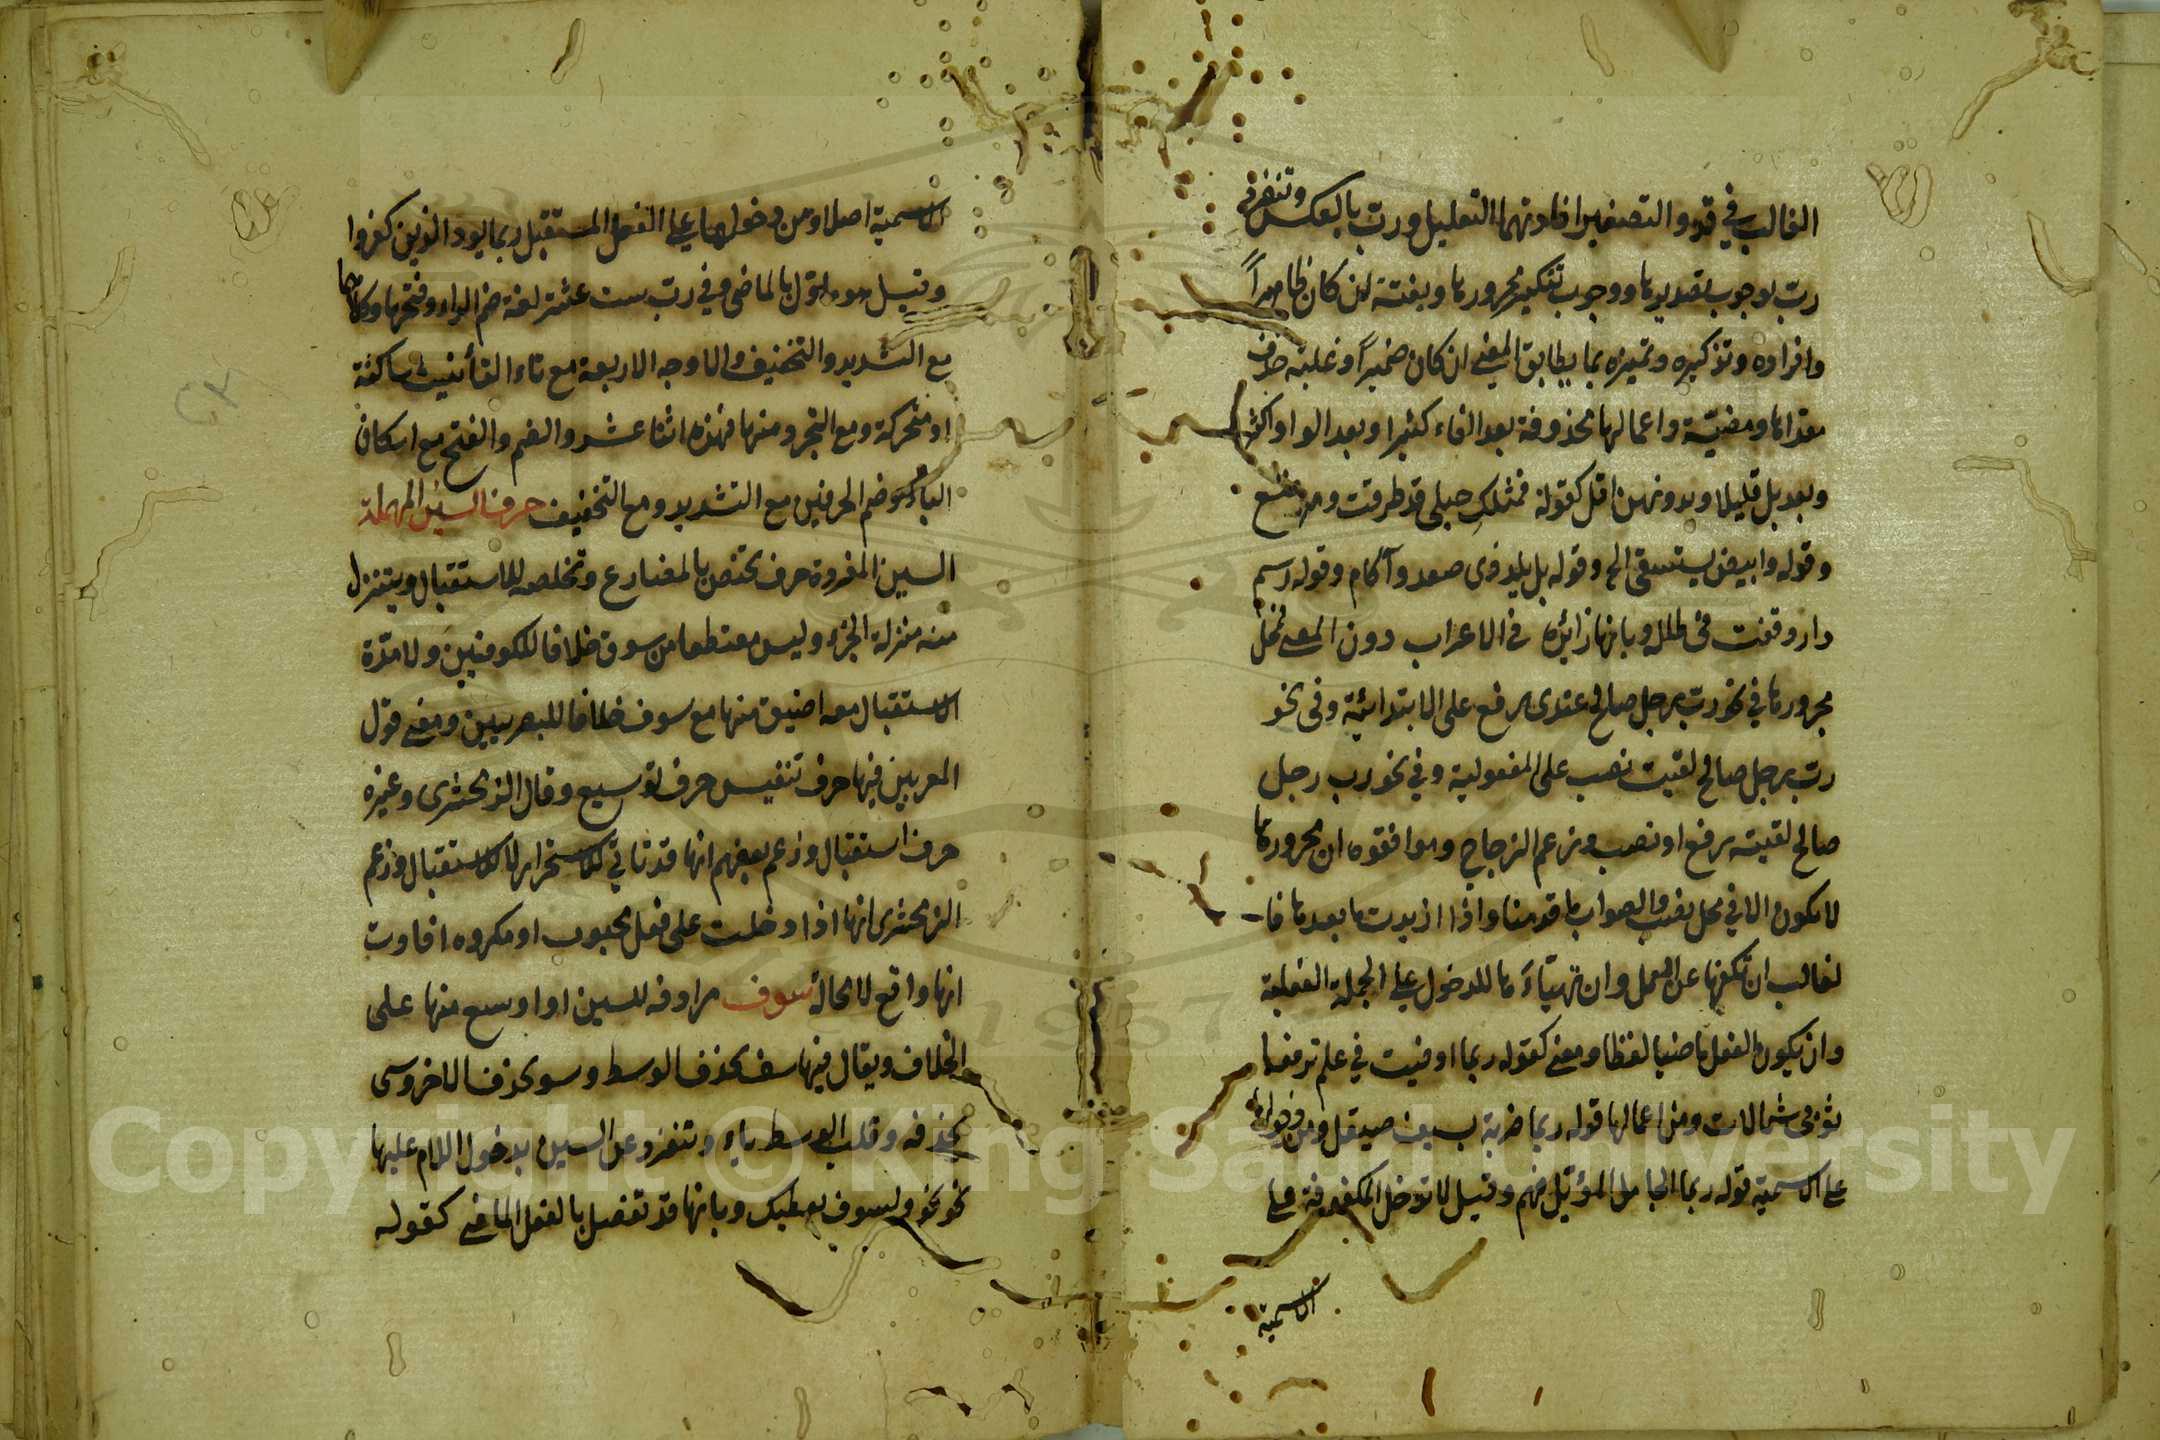 الغالب في قد والتصغير افادتهما التعليل ورب بالعكس وتنفرد
رب بوجوب تصديرها ووجوب تنكير مجرورها وبغتة ان كان ظاهراً
وافراده وتذكيره وتميزه بما يطابق المعنى ان كان ضميراً وغلبة حذف
معداها ومضيّه واعمالها محذوفة بعد الفاء كثيرا وبعد الواو اكثر
وبعد بل قليلا وبدونهن اقل كقوله فمثلك حبلى قد طرقت ومرضع
وقوله وابيض يستسقى الخ وقوله بل بلد ذى صعد وآكام وقوله رسم
دار وقفت فى طلله وبانها زائدة في الاعراب دون المعنى فمحل
مجرورها في نحو رب رجل صالح عندى رفع على الابتدائية وفى نحو
رب رجل صالح لقيت نصب على المفعولية وفي نحو رب رجل
صالح لقيته رفع او نصب وزعم الزجاج وموافقوه ان مجرورها
لا يكون الا في محل نصب والصواب ما قدمنا واذا ازيدت ما بعدها فا
لغالب ان تكفها عن العمل وان تهيّأها للدخول على الجملة الفعلية
وان يكون الفعل ماضيا لفظا ومعنى كقوله ربما اوفيت في علم ترفعا
ثوبى شمالات ومن اعمالها قوله ربما ضربة بسيف صيقل ومن دخولها
على الاسمية قوله ربما الجامل المؤبّل فيهم وقيل لا تدخل المكفوفة على
الاسمية
الاسمية اصلا ومن دخولها على الفعل المستقبل ربما يود الذين كفروا
وقيل هو مؤول بالماضى وفي رب ست عشرة لغة ضم الراء وفتحها وكلاهما
مع التشديد والتخفيف والاوجه الاربعة مع تاء التأنيث ساكنة
او متحركة ومع التجرد منها فهذه اثنا عشر والضم والفتح مع اسكان
الباء وضم الحرفين مع التشديد ومع التخفيف حرف السين المهملة
السين المفردة حرف يختص بالمضارع وتخلصه للاستقبال ويتنزل
منه منزلة الجزء وليس مقتطعا من سوف خلافا للكوفيين ولا مدّة
الاستقبال معه اضيق منها مع سوف خلافا للبصريين ومعنى قول
المعربين فيها حرف تنفيس حرف توسيع وقال الزمخشرى وغيره
حرف استقبال وزعم بعضهم انها قد تاتي للاستمرار لا للاستقبال وزعم
الزمخشرى انها اذا دخلت على فعل محبوب او مكروه افادت
انها واقع لا محالة سوف مرادفه للسين او اوسع منها على
الخلاف ويقال فيها سف بحذف الوسط وسو بحذف الاخر وسى
بحذفه وقلب الوسط ياء وتنفرد عن السين بدخول اللام عليها
نحو ولسوف يعطيك وبانها قد تفصل بالفعل الملغى كقوله
Copyright © King Saud University
1957